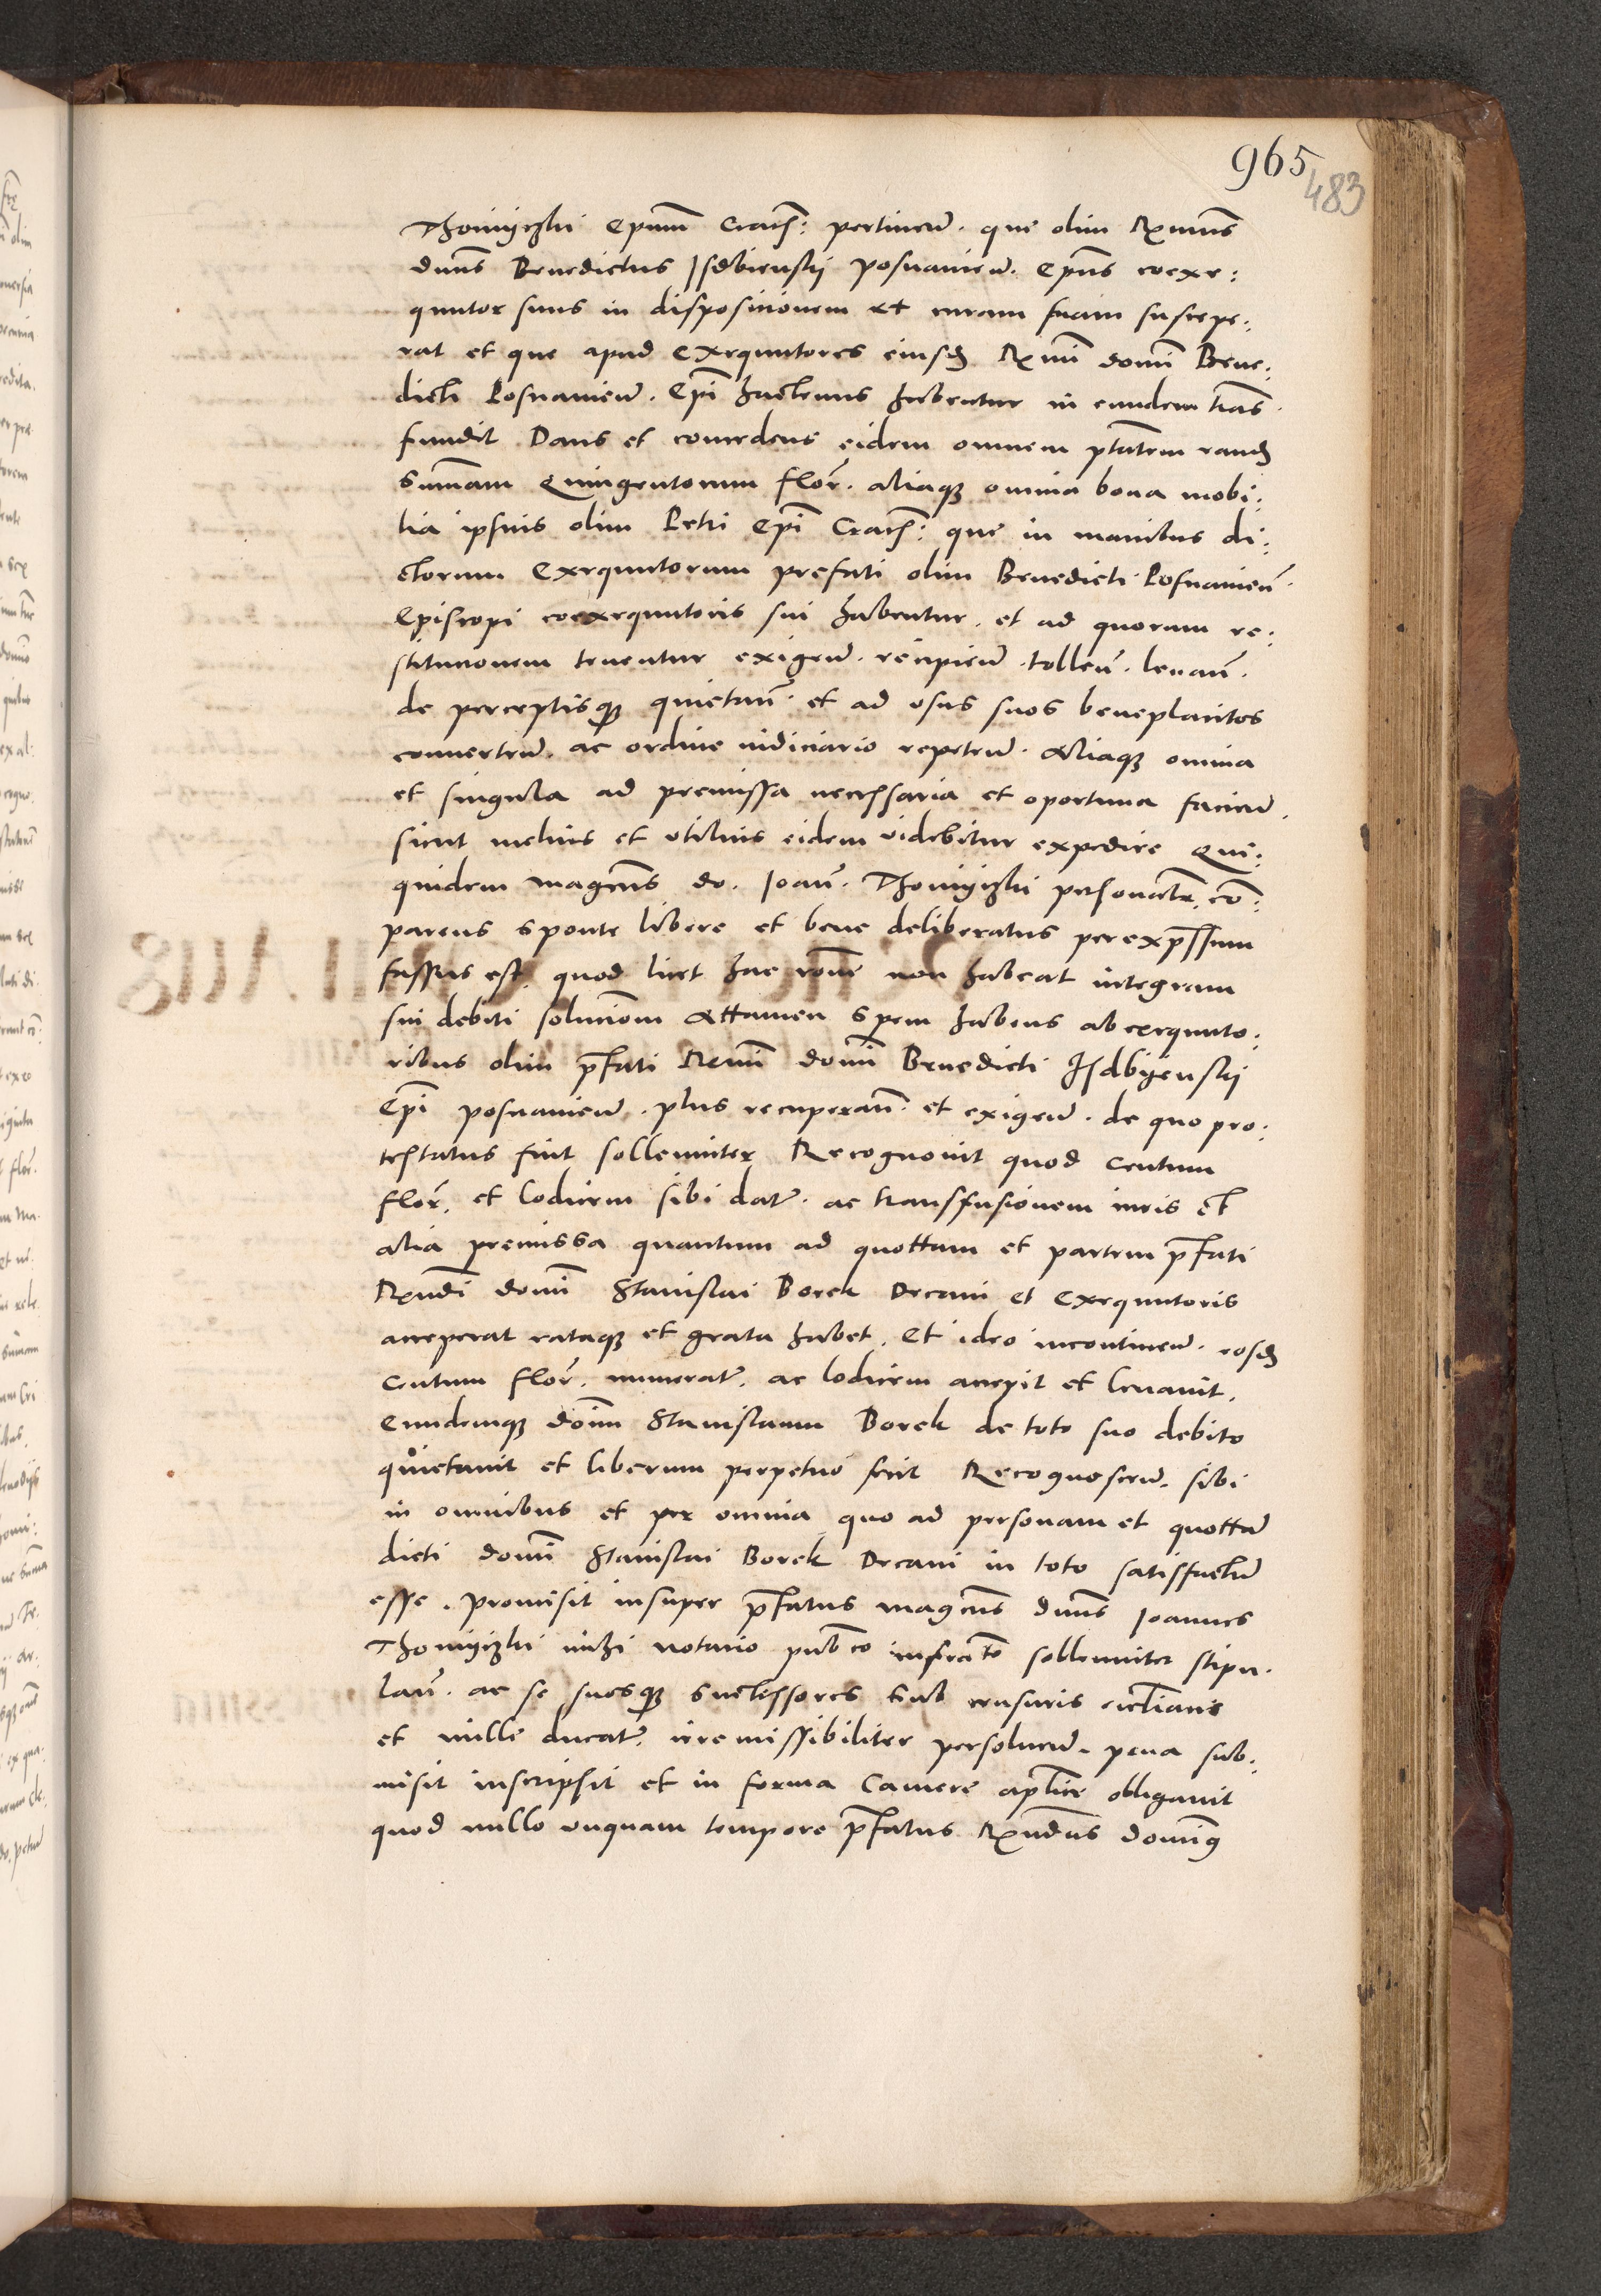 965
483
Thomiczki Epum̄ Crac̄: pertineñ. que olim Rx̄mus
dn̄us Benedictus Isdbienskj posnanieñ. Ep̄us coexe:
qnutor suus in dispositionem et curam suam suscepe:
rat et que apud Exequutores eiusd̄ Rx̄mi dom̄i Bene:
dicti Posnanieñ. Ep̄i hactenus habentur in eundem tr̄as
fundit Dans et concedens eidem omnem p̄tatem eand̄
sum̄am Quingentorum flor̄. aliaqȝ omnia bona mobi:
lia ipsius olim Petri Ep̄i Crac̄: que in manibus di:
ctorum Exequutorum prefati olim Benedicti Posnanieñ
Episcopi coexequutoris sui habentur. et ad quorum re:
stitucionem tenentur exigeñ. recipieñ. tolleñ. leuañ.
de perceptisqȝ quietañ. et ad vsus suos beneplacitos
conuerteñ. ac ordine iudiciario repeteñ. Aliaqȝ omnia
et singula ad premissa necessaria et oportuna facieñ.
sicut melius et vtilius eidem videbitur expedire Qui:
quidem magc̄us do. Joañ. Thomiczki personalr̄. co͞:
parens sponte libere et bene deliberatus per exp̄ssum
fassus est. quod licet hac ron̄e non habeat integram
sui debiti solucion̄m Attamen spem habens ab exequuto:
ribus olim p̄fati Rx̄mi dom̄i Benedicti Isdbyenskj
Ep̄i posnanieñ. plus recuperañ. et exigeñ. de quo pro:
testatus fuit sollenniter Recognouit quod Centum
flor̄. et lodicem sibi datr̄. ac transfusionem iuris et
alia premissa quantum ad quottam et partem p̄fati
Rx̄ndi dom̄i Stanislai Borek Decani et Exequutoris
acceperat rataqȝ et grata habet. Et ideo incontineñ. eosd̄
Centum flor̄. numeratr̄. ac lodicem accepit et leuauit.
Eundemqȝ dom̄ Stanislaum Borek de toto suo debito
quietauit et liberum perpetuo fecit Recognosceñ. sibi
in omnibus et per omnia quo ad personam et quottā
dicti dom̄i Stanislai Borek Decani in toto satisfactū
esse. Promisit insuper p̄fatus magc̄us dn̄us Joannes
Thomiczki mihi notario pub̄co infrac̄to sollenniter stipu.
lañ. ac se suosqȝ successores sub censuris ecc̄lianis
et mille ducatr̄. irremissibiliter persolueñ. pena sub:
misit inscripsit et in forma Camere ap̄lice obligauit
quod nullo vnquam tempore p̄fatus Rx̄ndus dominꝰ